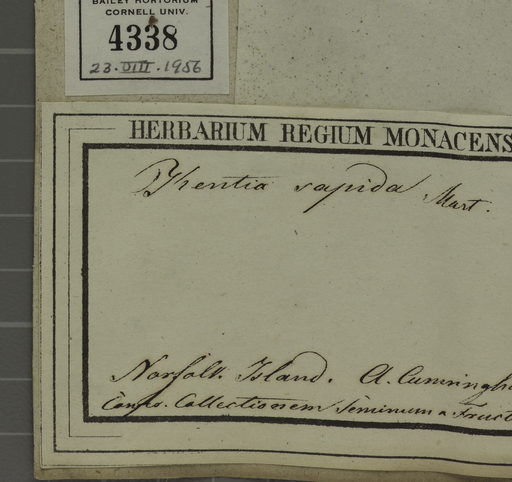 BAILEY HORTORIUM
CORNELL UNIV.
4338
23.VIII.1956
HERBARIUM REGIUM MONACENS
Kentia sapida Mart.
Norfolk Island. A. Cunningh
Confr. Collectionem Seminum & Fruct